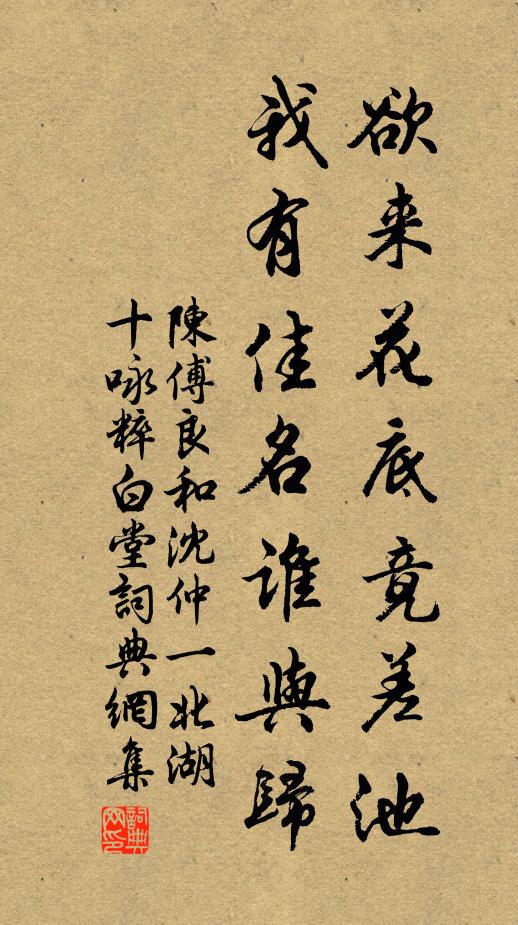 欲来花底竟差池
我有佳名谁與歸
陳傅良和沈仲一北湖
十咏粹白堂詞典網集
詞典
网印